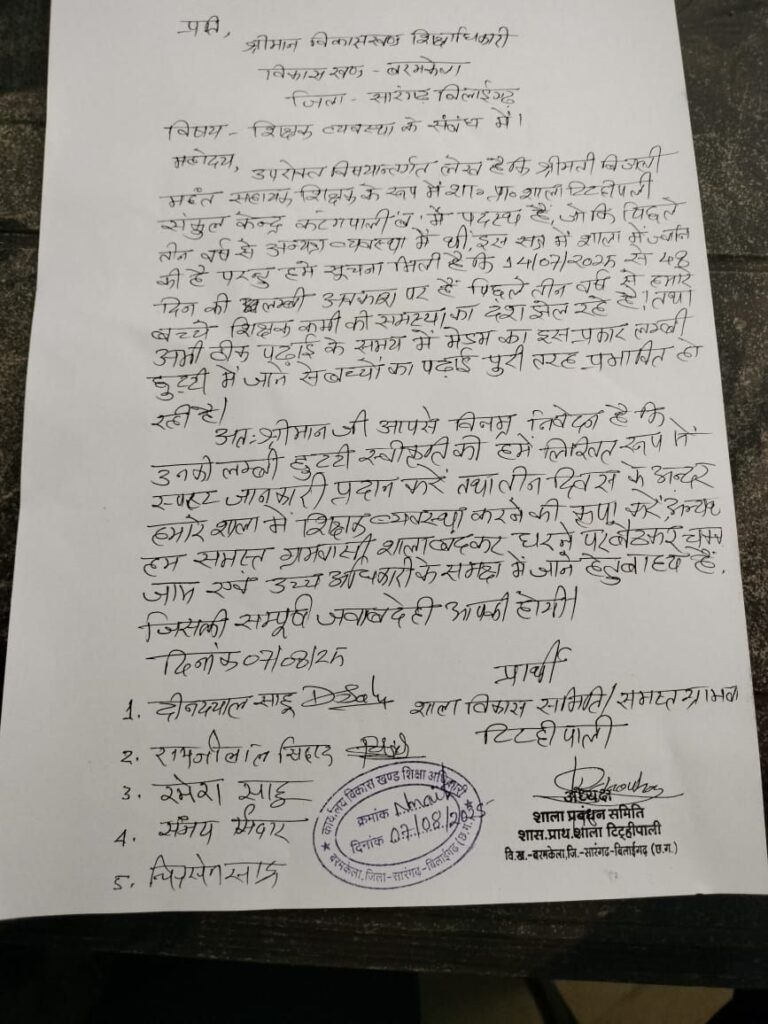 प्रति,
श्रीमान विकासखण्ड शिक्षाधिकारी
विकास खण्ड - बरमकेला
जिला - सारंगढ़ बिलाईगढ़
विषय - शिक्षक व्यवस्था के संबंध में।
महोदय,
उपरोक्त विषयान्तर्गत लेख है कि श्रीमती बिजली
महंत सहायक शिक्षक के रूप में शा० प्रा० शाला टिटहीपाली
संकुल केन्द्र कटंगपाली 'ब' में पदस्थ हैं, जो कि पिछले
तीन वर्ष से अन्यत्र व्यवस्था में थी, इस सत्र में शाला में ज्वाईन
की है परन्तु हमे सूचना मिली है कि 14/07/2025 से 48
दिन की लम्बी अवकाश पर हैं पिछले तीन वर्ष से हमारे
बच्चे शिक्षक कमी की समस्या का दंश झेल रहे है। तथा
अभी ठीक पढ़ाई के समय में मेडम का इस प्रकार लम्बी
छुट्टी में जाने से बच्चों का पढ़ाई पुरी तरह प्रभावित हो
रही है।
अतः श्रीमान जी आपसे विनम्र निवेदन है कि
उनकी लम्बी छुट्टी स्वीकृति की हमें लिखित रूप में
स्पष्ट जानकारी प्रदान करें तथा तीन दिवस के अन्दर
हमारे शाला में शिक्षक व्यवस्था करने की कृपा करें, अन्यथा
हम समस्त ग्रामवासी शाला बंदकर धरने पर बैठकर चक्का
जाम एवं उच्च अधिकारी के समक्ष में जाने हेतु बाध्य हैं.
जिसकी सम्पूर्ण जवाबदेही आपकी होगी।
दिनांक 07/08/25
प्रार्थी
शाला विकास समिति/समस्त ग्रामवा
टिटहीपाली
1. दीनदयाल साहू
2. रामजीलाल सिदार
3. रमेश साहू
4. संजय सिदार
5. चित्रसेन साहू
कार्यालय विकास खण्ड शिक्षा अधिकारी
क्रमांक
दिनांक 07/08/2025
बरमकेला, जिला-सारंगढ़-बिलाईगढ़ (छ.ग.)
अध्यक्ष
शाला प्रबंधन समिति
शास.प्राथ.शाला टिट्हीपाली
वि.ख.-बरमकेला,जि.-सारंगढ़-बिलाईगढ़ (छ.ग.)